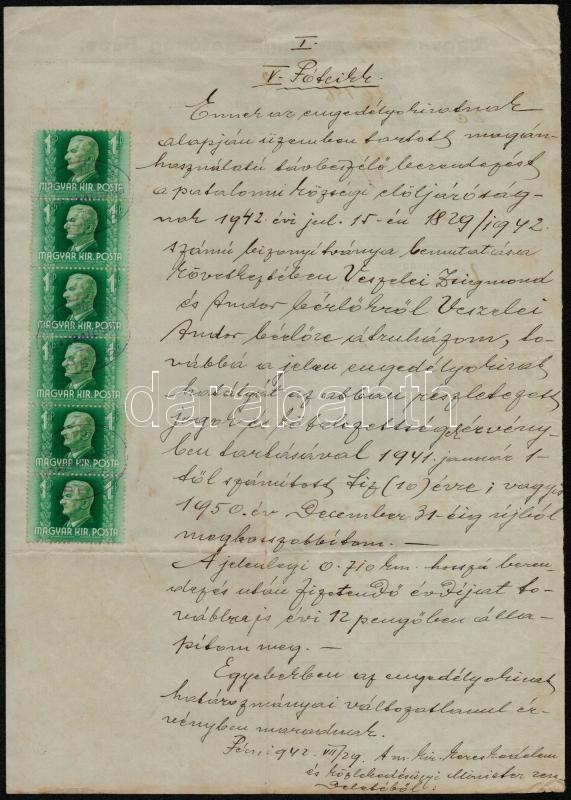 I.
V. Pótcikk.
Ennek az engedélyokiratnak
alapján üzemben tartott magán-
használatú távbeszélő berendezést
a patalomi községi elöljáróság-
nak 1942. évi jul. 15-én 1829/1942.
számú bizonyítványa bemutatása
következtében Veszelei Zsigmond
és Andor bérlőkről Veszelei
Andor bérlőre átruházom, to-
vábbá a jelen engedélyokirat
hatályát az abban részletezett
jogok és kötelezettségek érvény-
ben tartásával 1941. január 1-
től számított tíz (10) évre, vagyis
1950. év December 31-éig újból
meghosszabbítom. —
A jelenlegi 0.710 km. hosszú beren-
dezés után fizetendő évdíjat to-
vábbra is évi 12 pengőben álla-
pítom meg. —
Egyebekben az engedélyokirat
határozmányai változatlanul ér-
vényben maradnak.
Pécs, 1942. VII/29. A m. kir. Kereskedelem
és Közlekedésügyi Miniszter ren-
deletéből:
1 P
MAGYAR KIR. POSTA
1 P
MAGYAR KIR. POSTA
1 P
MAGYAR KIR. POSTA
1 P
MAGYAR KIR. POSTA
1 P
MAGYAR KIR. POSTA
1 P
MAGYAR KIR. POSTA
darabanth